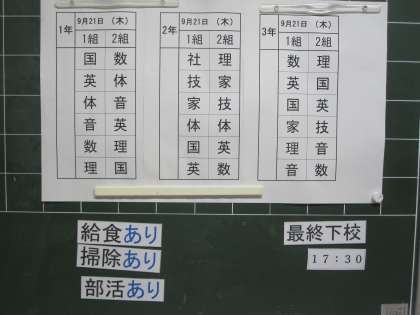 1年 9月21日 (木)
1組 2組
国 数
英 体
体 音
音 英
数 理
理 国
2年 9月21日 (木)
1組 2組
社 理
技 家
家 技
体 体
国 英
英 数
3年 9月21日 (木)
1組 2組
数 理
英 国
国 英
家 技
理 音
音 数
給食あり
掃除あり
部活あり
最終下校
17:30